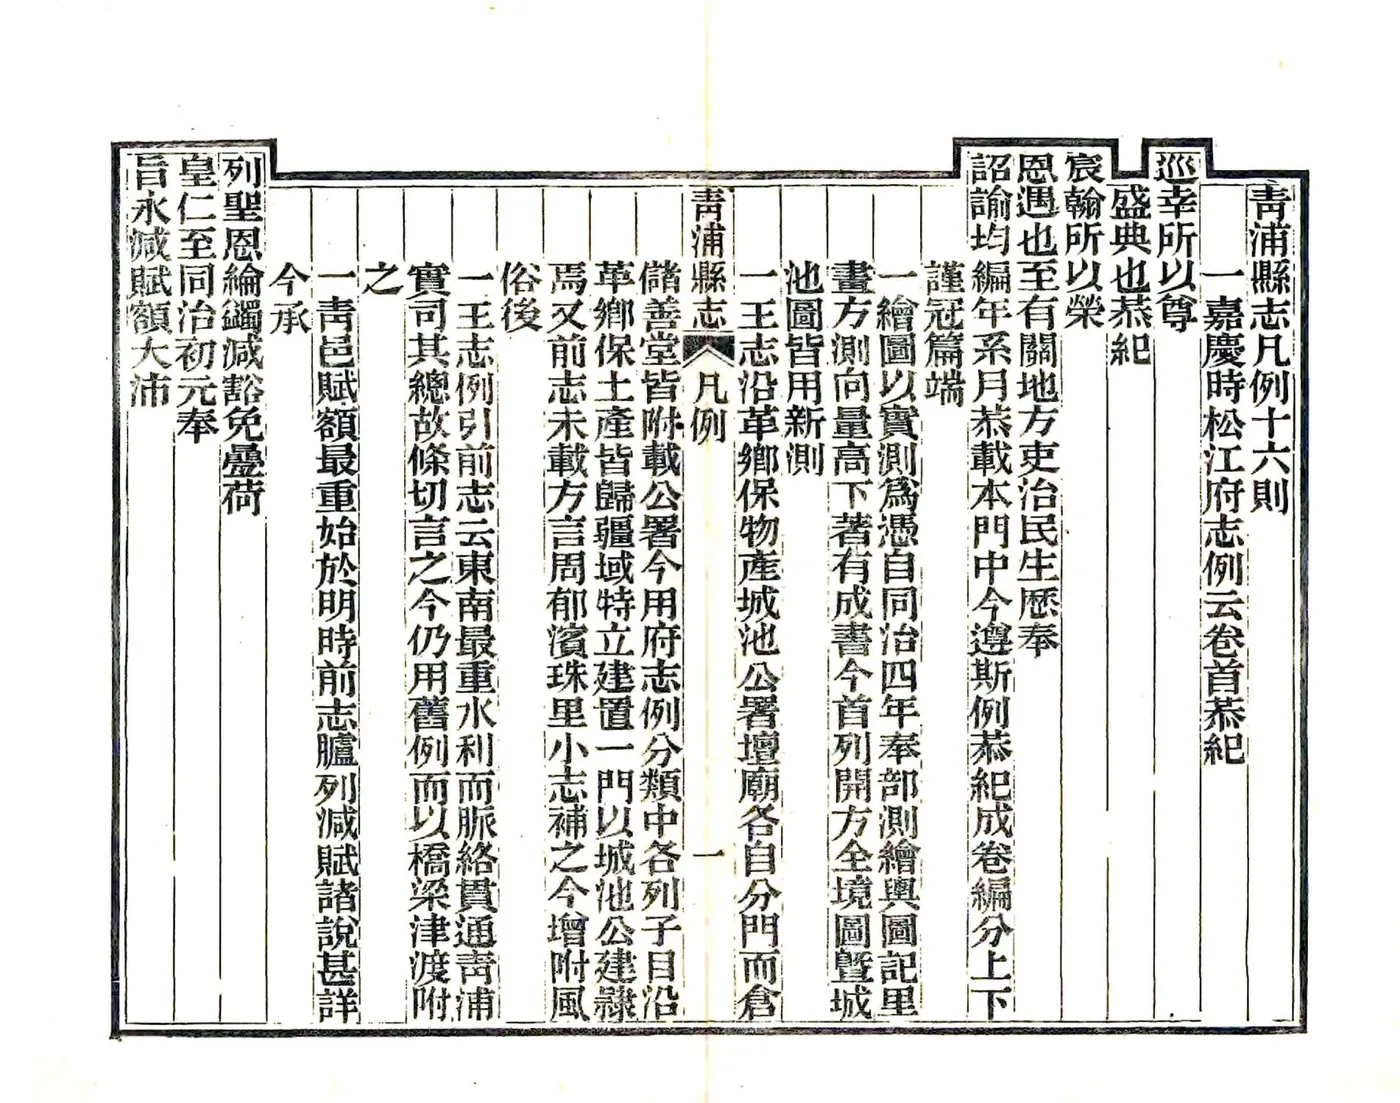 青浦縣志凡例十六則
一嘉慶時松江府志例云卷首恭紀
巡幸所以尊
盛典也恭紀
宸翰所以榮
恩遇也至有關地方吏治民生歷奉
詔諭均編年系月恭載本門中今遵斯例恭紀成卷編分上下
謹冠篇端
一繪圖以實測爲憑自同治四年奉部測繪輿圖記里
畫方測向量高下著有成書今首列開方全境圖曁城
池圖皆用新測
一王志沿革鄉保物產城池公署壇廟各自分門而倉
青浦縣志 凡例 一
儲善堂皆附載公署今用府志例分類中各列子目沿
革鄉保土產皆歸疆域特立建置一門以城池公建隸
焉又前志未載方言周郁濱珠里小志補之今增附風
俗後
一王志例引前志云東南最重水利而脈絡貫通青浦
實司其總故條切言之今仍用舊例而以橋梁津渡附
之
一青邑賦額最重始於明時前志臚列減賦諸說甚詳
今承
列聖恩綸蠲減豁免疊荷
皇仁至同治初元奉
旨永減賦額大沛